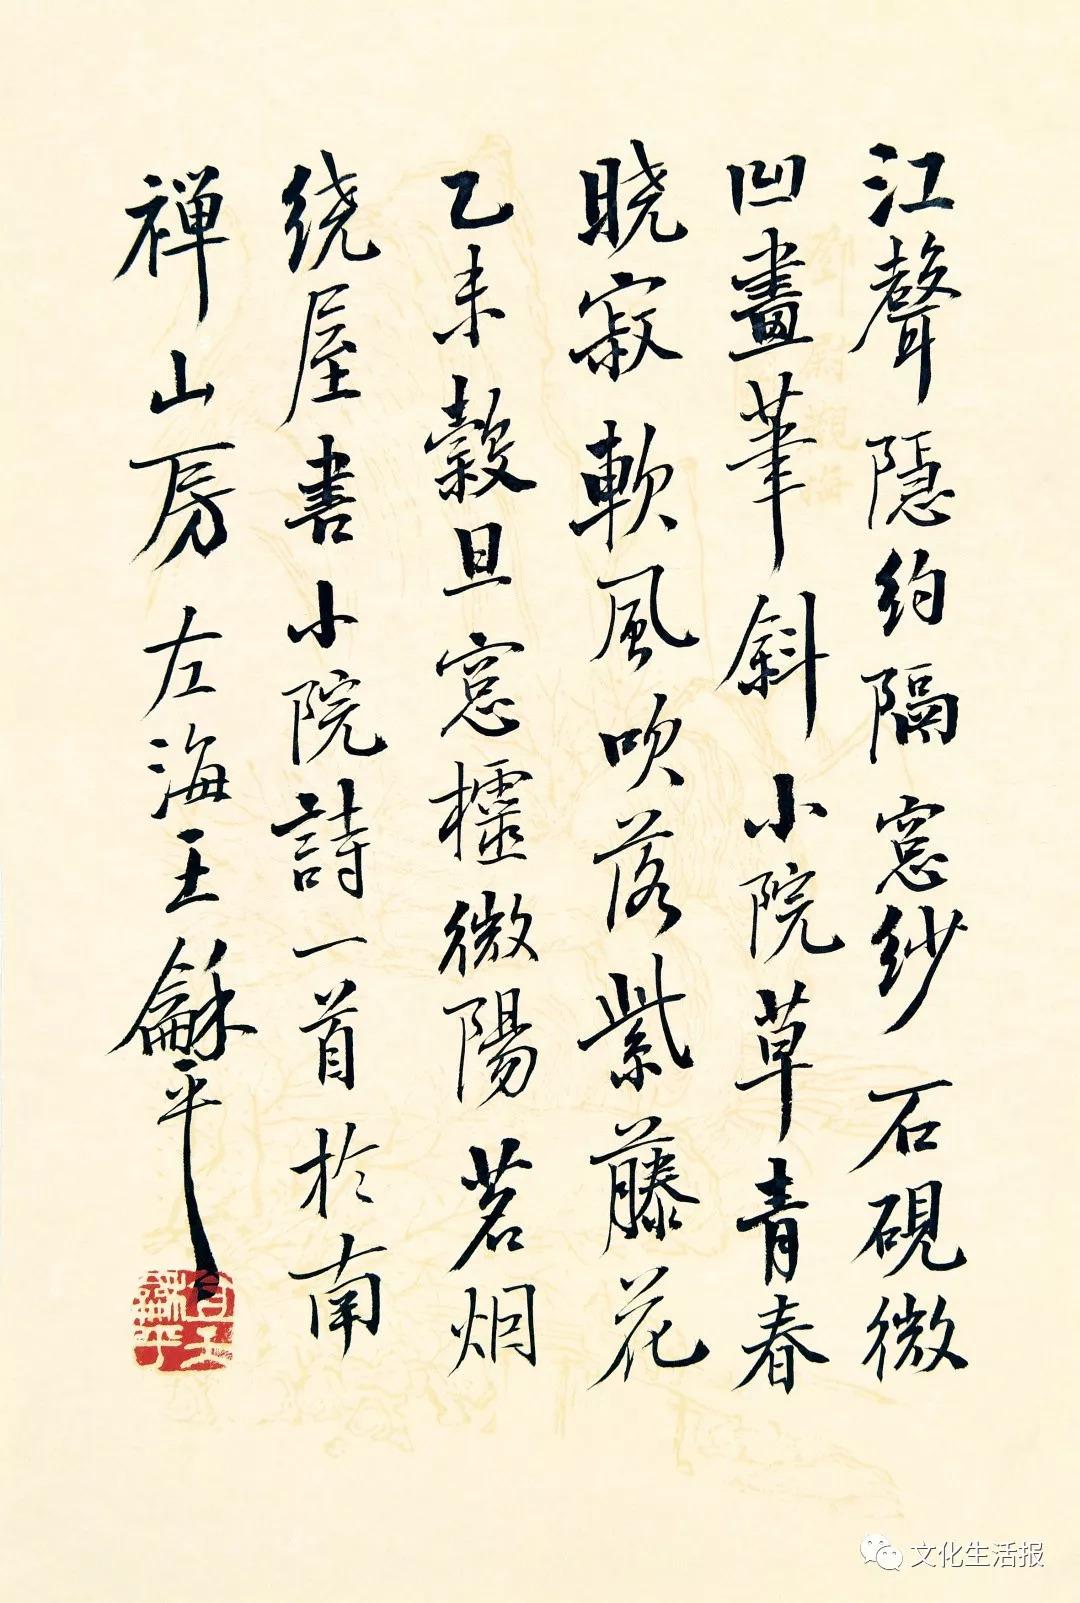 江聲隱約隔窓紗石硯微
凹畫筆斜小院草青春
晓寂軟風吹落紫藤花
乙未穀旦窓櫺微陽茗烟
绕屋書小院詩一首於南
禅山房左海王龢平
文化生活报